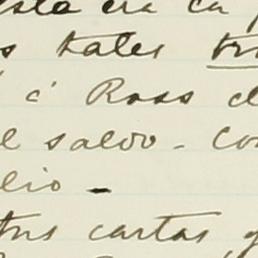 esta era la
s tales
á Ross d
el saldo - Co
lio -
tus cartas y